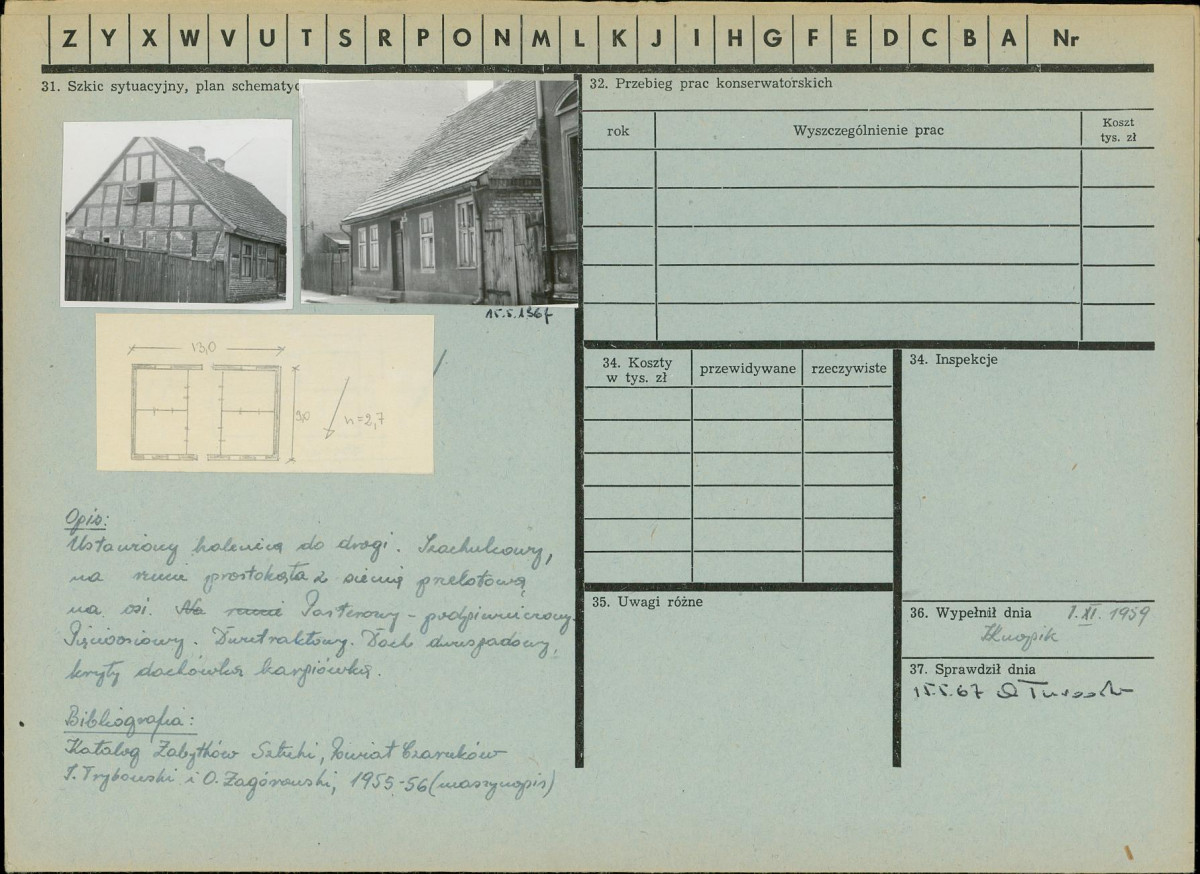 Z Y X W V U T S R P O N M L K J I H G F E D C B A Nr
31. Szkic sytuacyjny, plan schematyc
15.5.1967
13,0
9,0
n=2,7
Opis:
Ustawiony kalenicą do drogi. Szachulcowy,
na rzucie prostokąta z sienią przelotową
na osi. Na rzucie Parterowy - podpiwniczony.
Pięcioosiowy. Dwutraktowy. Dach dwuspadowy,
kryty dachówką karpiówką.
Bibliografia:
Katalog Zabytków Sztuki, Powiat Czarnków
T. Trybowski i O. Zagórowski, 1955-56 (maszynopis)
32. Przebieg prac konserwatorskich
rok
Wyszczególnienie prac
Koszt
tys. zł
34. Koszty
w tys. zł
przewidywane
rzeczywiste
34. Inspekcje
35. Uwagi różne
36. Wypełnił dnia 1.XI.1959
37. Sprawdził dnia
15.5.67